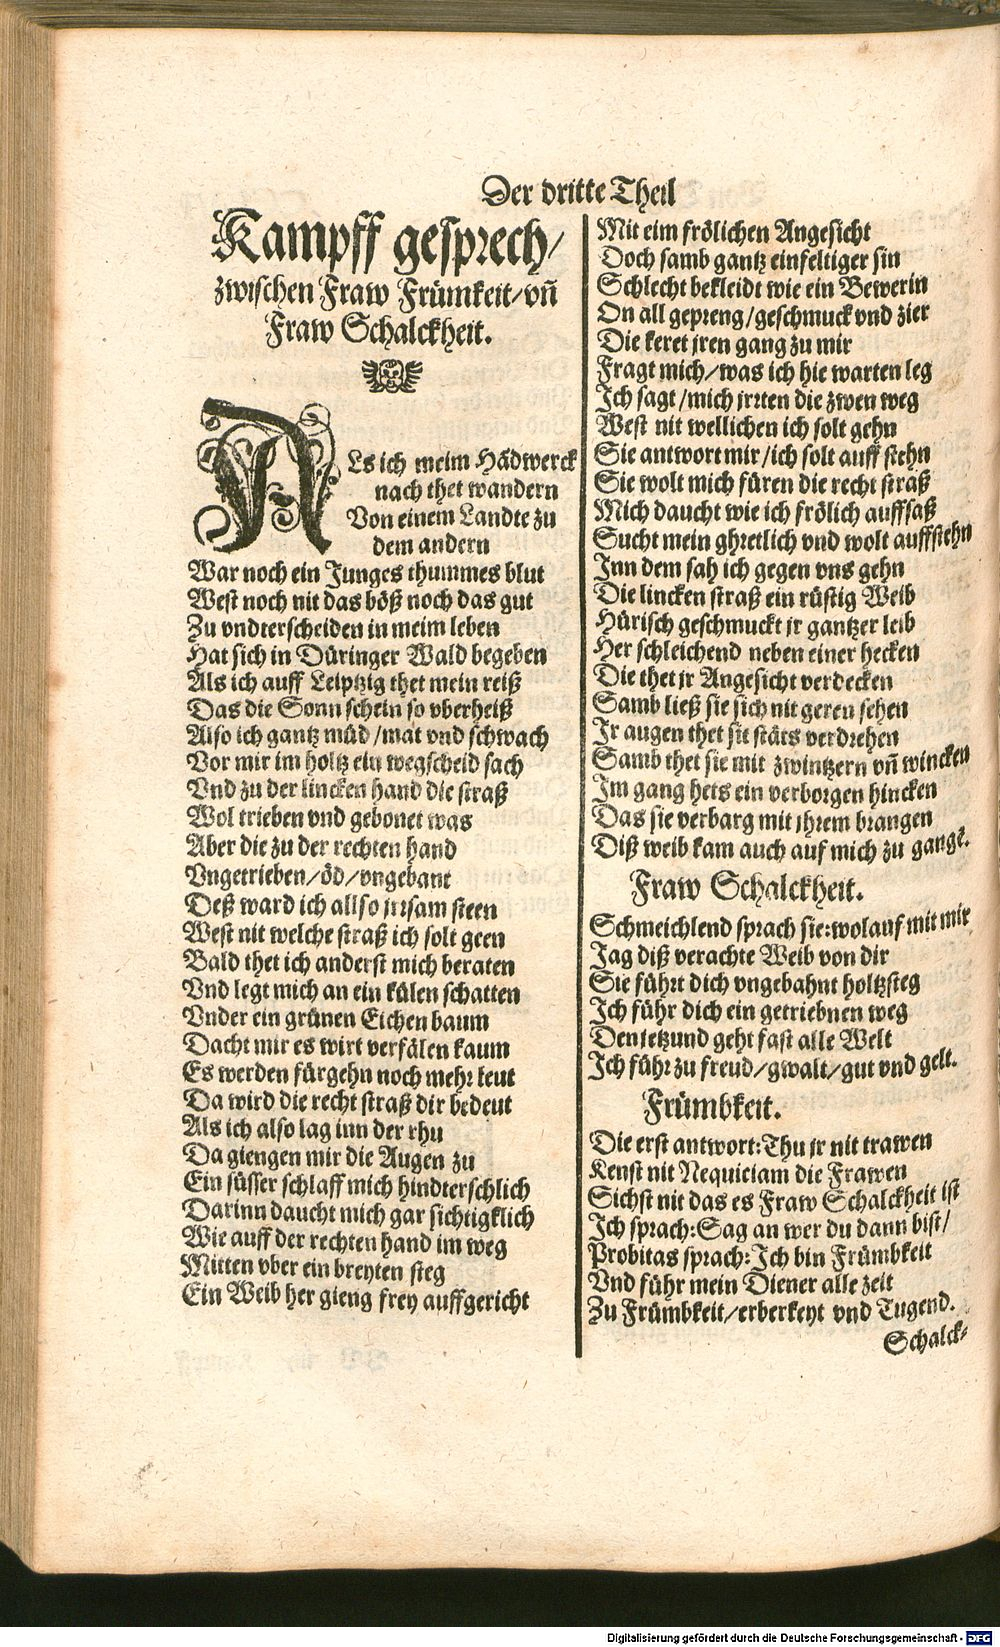 Der dritte Theil
Kampff gesprech/
zwischen Fraw Frümkeit/vn̄
Fraw Schalckheit.
ALs ich meim Hādwerck
nach thet wandern
Von einem Landte zu
dem andern
War noch ein Junges thummes blut
West noch nit das böß noch das gut
Zu vndterscheiden in meim leben
Hat sich in Düringer Wald begeben
Als ich auff Leiptzig thet mein reiß
Das die Sonn schein so vberheiß
Also ich gantz müd/mat vnd schwach
Vor mir im holtz ein wegscheid sach
Vnd zu der lincken hand die straß
Wol trieben vnd gebonet was
Aber die zu der rechten hand
Vngetrieben/öd/vngebant
Deß ward ich allso jrrsam steen
West nit welche straß ich solt geen
Bald thet ich anderst mich beraten
Vnd legt mich an ein külen schatten
Vnder ein grünen Eichen baum
Dacht mir es wirt verfälen kaum
Es werden fürgehn noch mehr leut
Da wird die recht straß dir bedeut
Als ich also lag inn der rhu
Da giengen mir die Augen zu
Ein süsser schlaff mich hindterschlich
Darinn daucht mich gar sichtigklich
Wie auff der rechten hand im weg
Mitten vber ein breyten steg
Ein Weib her gieng frey auffgericht
Mit eim frölichen Angesicht
Doch samb gantz einfeltiger sin
Schlecht bekleidt wie ein Bewerin
On all gepreng/geschmuck vnd zier
Die keret jren gang zu mir
Fragt mich/was ich hie warten leg
Ich sagt/mich jrrten die zwen weg
West nit wellichen ich solt gehn
Sie antwort mir/ich solt auff stehn
Sie wolt mich füren die recht straß
Mich daucht wie ich frölich auffsaß
Sucht mein ghretlich vnd wolt auffstehn
Inn dem sah ich gegen vns gehn
Die lincken straß ein rüstig Weib
Hürisch geschmuckt jr gantzer leib
Her schleichend neben einer hecken
Die thet jr Angesicht verdecken
Samb ließ sie sich nit geren sehen
Ir augen thet sie stäts verdrehen
Samb thet sie mit zwintzern vn̄ wincken
Im gang hets ein verborgen hincken
Das sie verbarg mit jhrem brangen
Diß weib kam auch auf mich zu gangē.
Fraw Schalckheit.
Schmeichlend sprach sie:wolauf mit mir
Jag diß verachte Weib von dir
Sie führt dich vngebahnt holtzsteg
Ich führ dich ein getriebnen weg
Den jetzund geht fast alle Welt
Ich führ zu freud/gwalt/gut vnd gelt.
Frümbkeit.
Die erst antwort:Thu jr nit trawen
Kenst nit Nequitiam die Frawen
Sichst nit das es Fraw Schalckheit ist
Ich sprach:Sag an wer du dann bist/
Probitas sprach:Ich bin Frümbkeit
Vnd führ mein Diener alle zeit
Zu Frümbkeit/erberkeyt vnd Tugend.
Schalck-
Digitalisierung gefördert durch die Deutsche Forschungsgemeinschaft - DFG